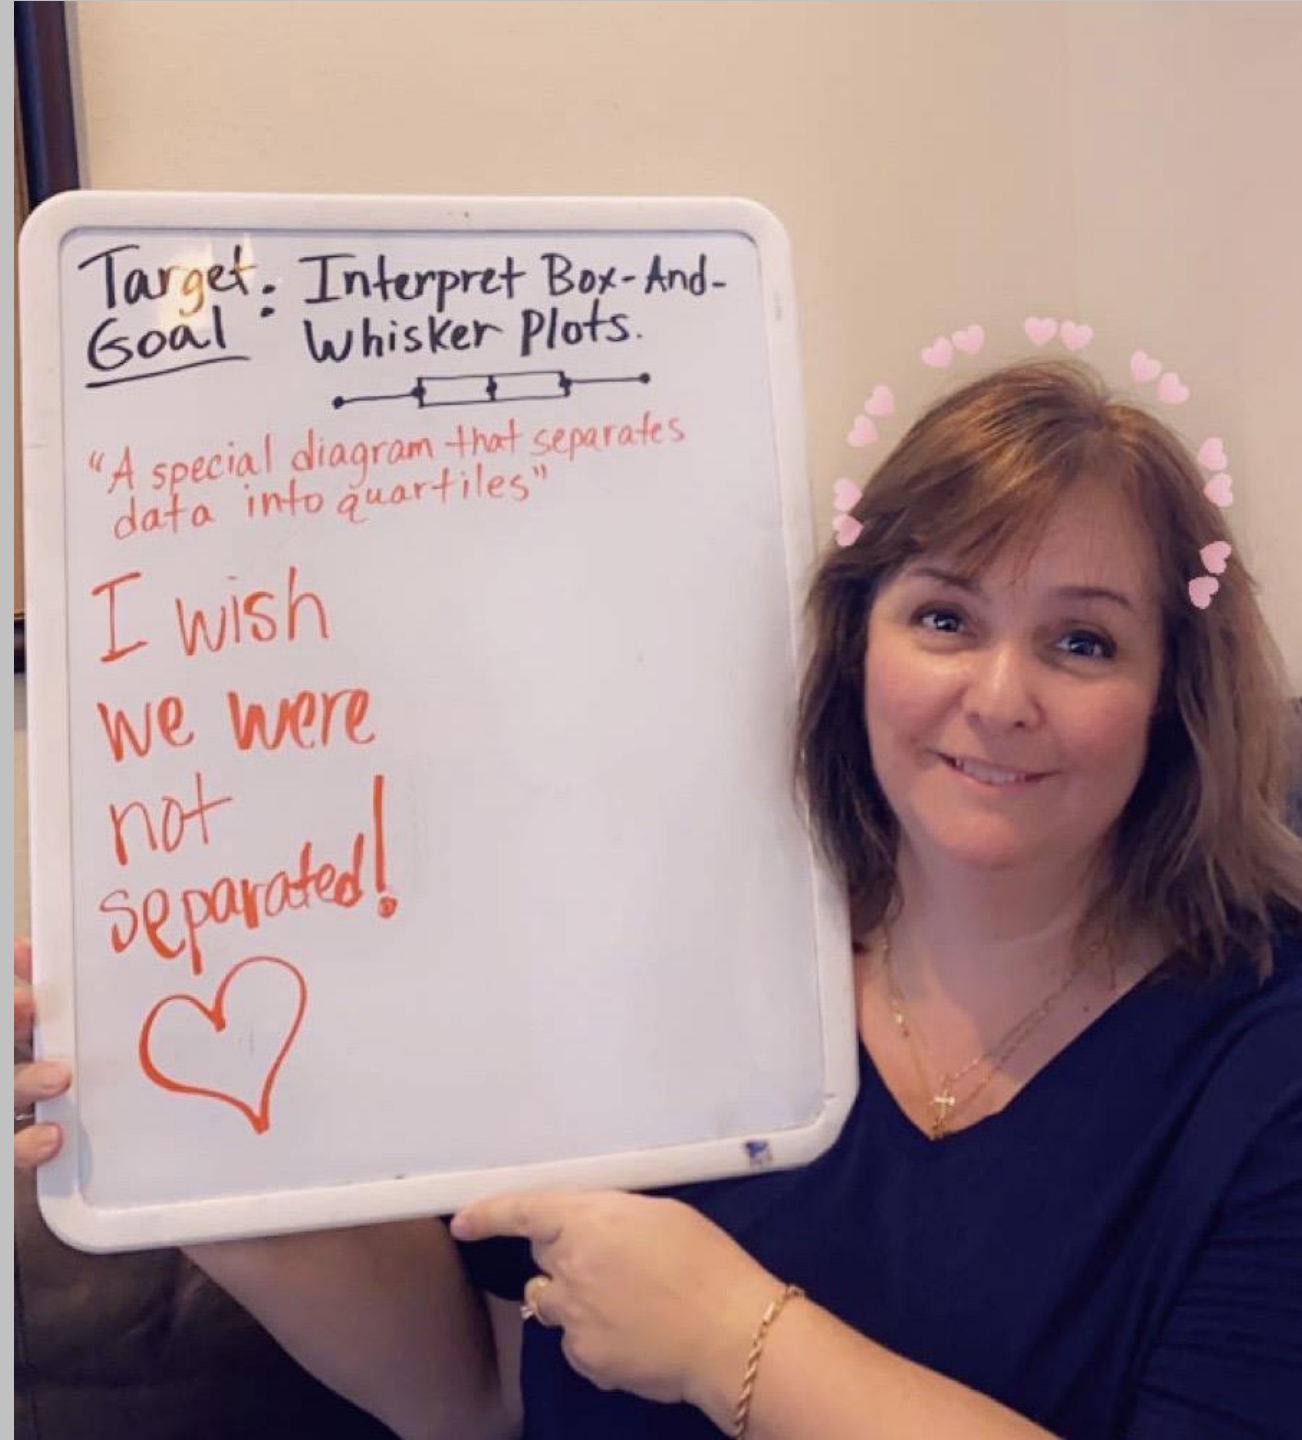 Target: Interpret Box-And-
Goal Whisker Plots.
"A special diagram that separates
data into quartiles"
I wish
we were
not
separated!